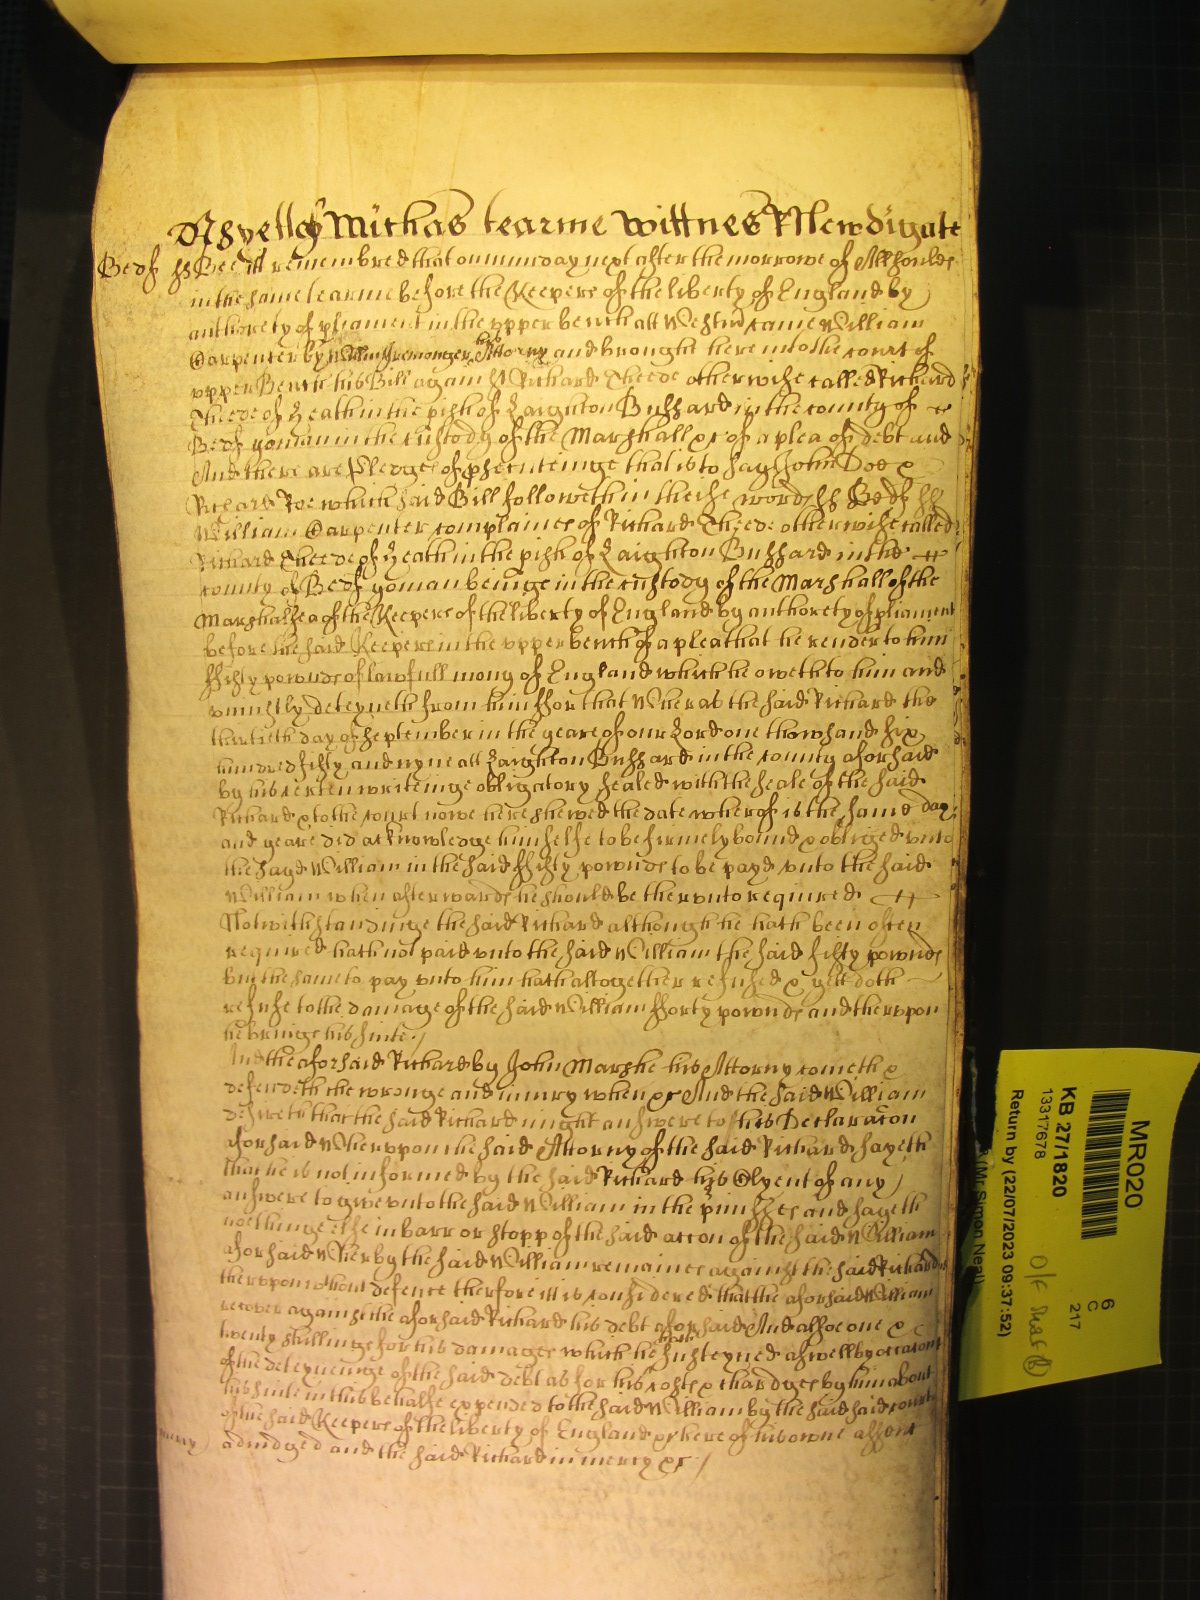 Aspelley Michas tearme Wittnes R Newdigate
Bedf ss Bee itt remembred that on munday next after the morrowe of All soules
in the same tearme before the Keepers of the liberty of England by
authorety of pliament in the vpper bench att Westmr came William
Carpenter by William Iremonger his Attorny and brought here into the court of
vpper Bench his Bill against Richard Theede otherwise called Richard
Theede of Heath in the pish of Laighton Bussard in the county of
Bedf yoman in the custody of the Marshall &c of a plea of debt and
And there are pledges of psecuteinge that is to say John Doe &
Richard Roe which said Bill followeth in theise words ss Bedf ss
William Carpenter complaines of Richard Theede otherwise called
Richard Theede of Heath in the pish of Laighton Bussard in the
county of Bedf yoman beinge in the custody of the Marshall of the
Marshalsea of the Keepers of the liberty of England by authorety of pliament
before the said Keepers in the vpper bench of a plea that he render to him
ffifty pownds of lawfull mony of England which he oweth to him and
vniustly deteyneth from him ffor that Wheras the said Richard the
thirtieth day of September in the yeare of our Lord one thowsand six
hundred fifty and nyne att Laighton Bussard in the county aforsaid
by his certen writeinge obligatory sealed with the seale of the said
Richard & to the court nowe here shewed the date wherof is the same day
and yeare did acknowledge himselfe to be firmely bound & obliged vnto
the sayd William in the said ffifty pownds to be payd vnto the said
William when afterwards he should be thervnto required
Notwithstandinge the said Richard although he hath been often
required hath not paid vnto the said William the said fifty pownds
but the same to pay vnto him hath altogether refused & yett doth
refuse to the damage of the said William fforty pownds and thervpon
he brings his suite
And the aforsaid Richard by John Marshe his Attorny cometh &
defendeth the wronge and iniury when &c And the said William
desireth that the said Richard might answere to his Declaracon
aforsaid Whervpon the said Attorny of the said Richard sayeth
that he is not informed by the said Richard his Clyent of any
answere to give vnto the said William in the pmisses and sayeth
nothinge else in barr or stopp of the said accon of the said William
aforsaid Wherby the said William remaines against the said Richard
thervpon without defence therfore itt is considered that the aforsaid William
recover against the aforsaid Richard his debt aforsaid And alsoe one &
twenty shillings for his damages which he hath susteyned aswell by occacon
of the deteyneinge of the said debt as for his costs & chardges by him about
his suite in this behalfe expended to the said William by the said said court
of the said Keepers of the liberty of England &c here of his owne assent
mercy adiudged and the said Richard in mercy &c
MR020
KB 27/1820
13317678
Return by (22/07/2023 09:37:52)
(Mr Simon Neal)
6
C
217
O/F Shelf B